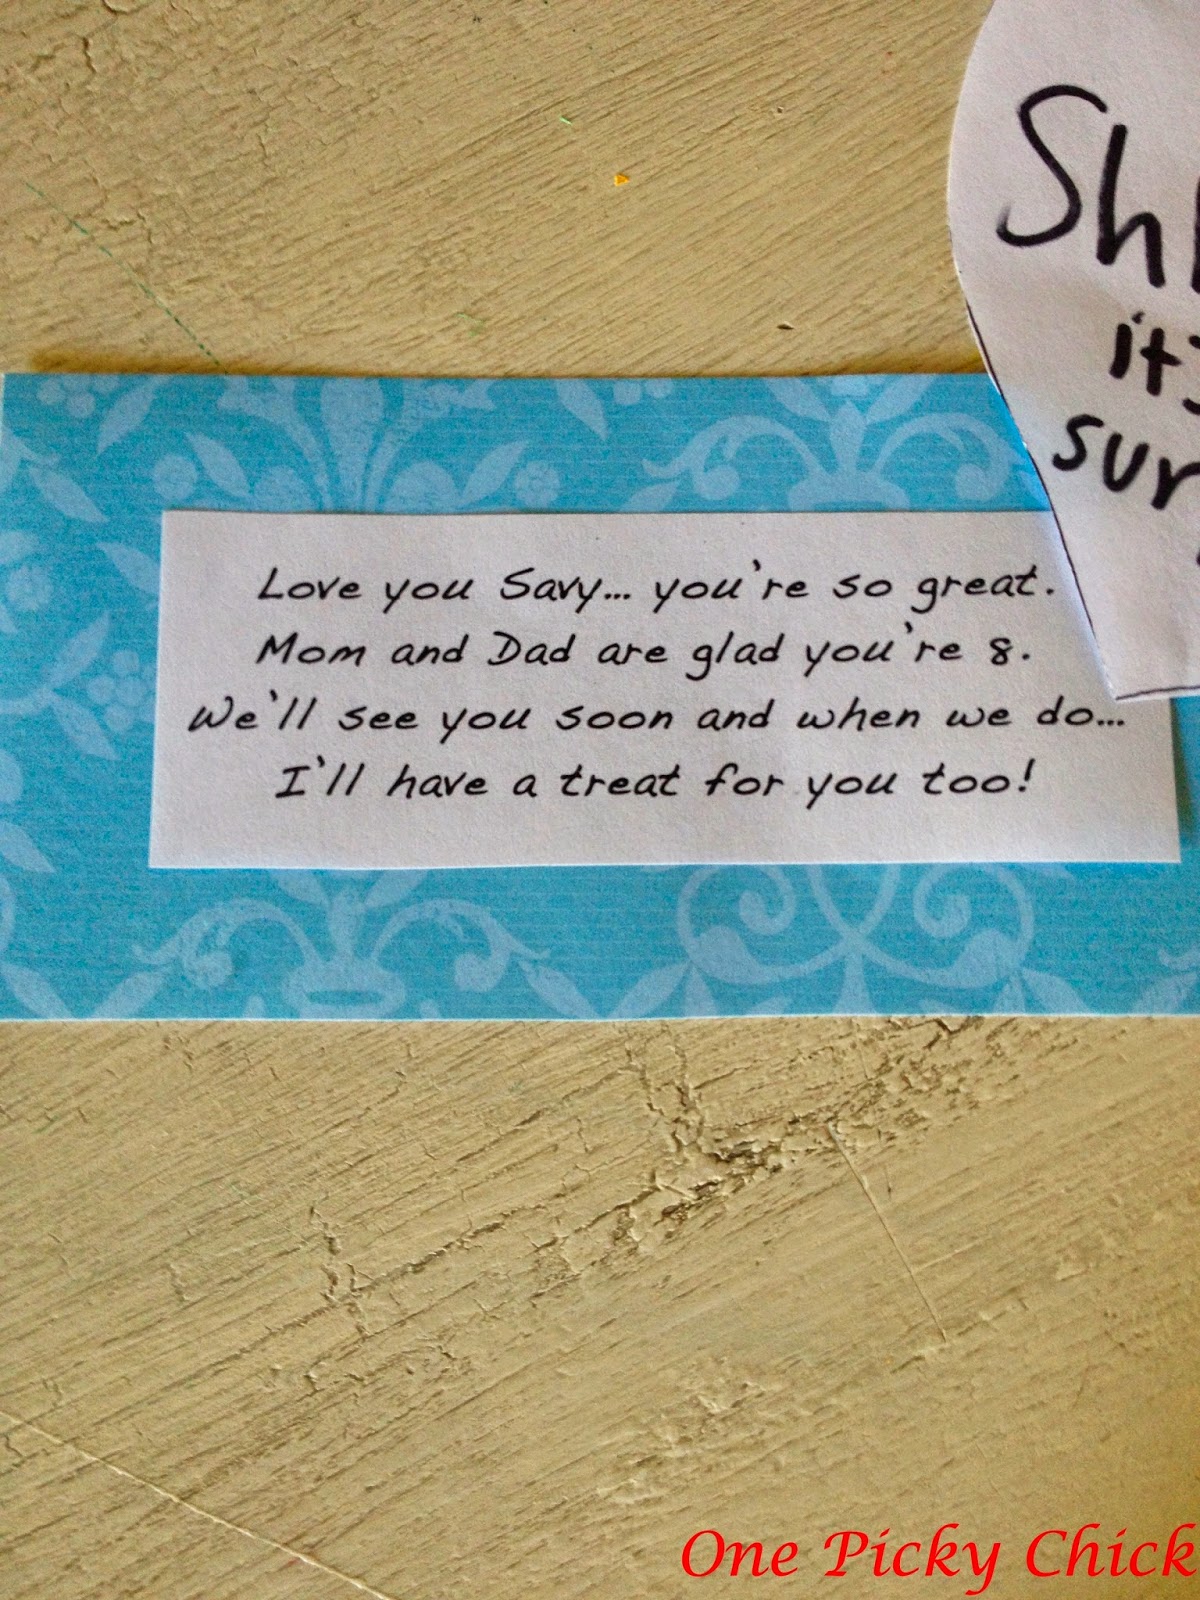 Love you Savy... you're so great.
Mom and Dad are glad you're 8.
We'll see you soon and when we do...
I'll have a treat for you too!
One Picky Chick